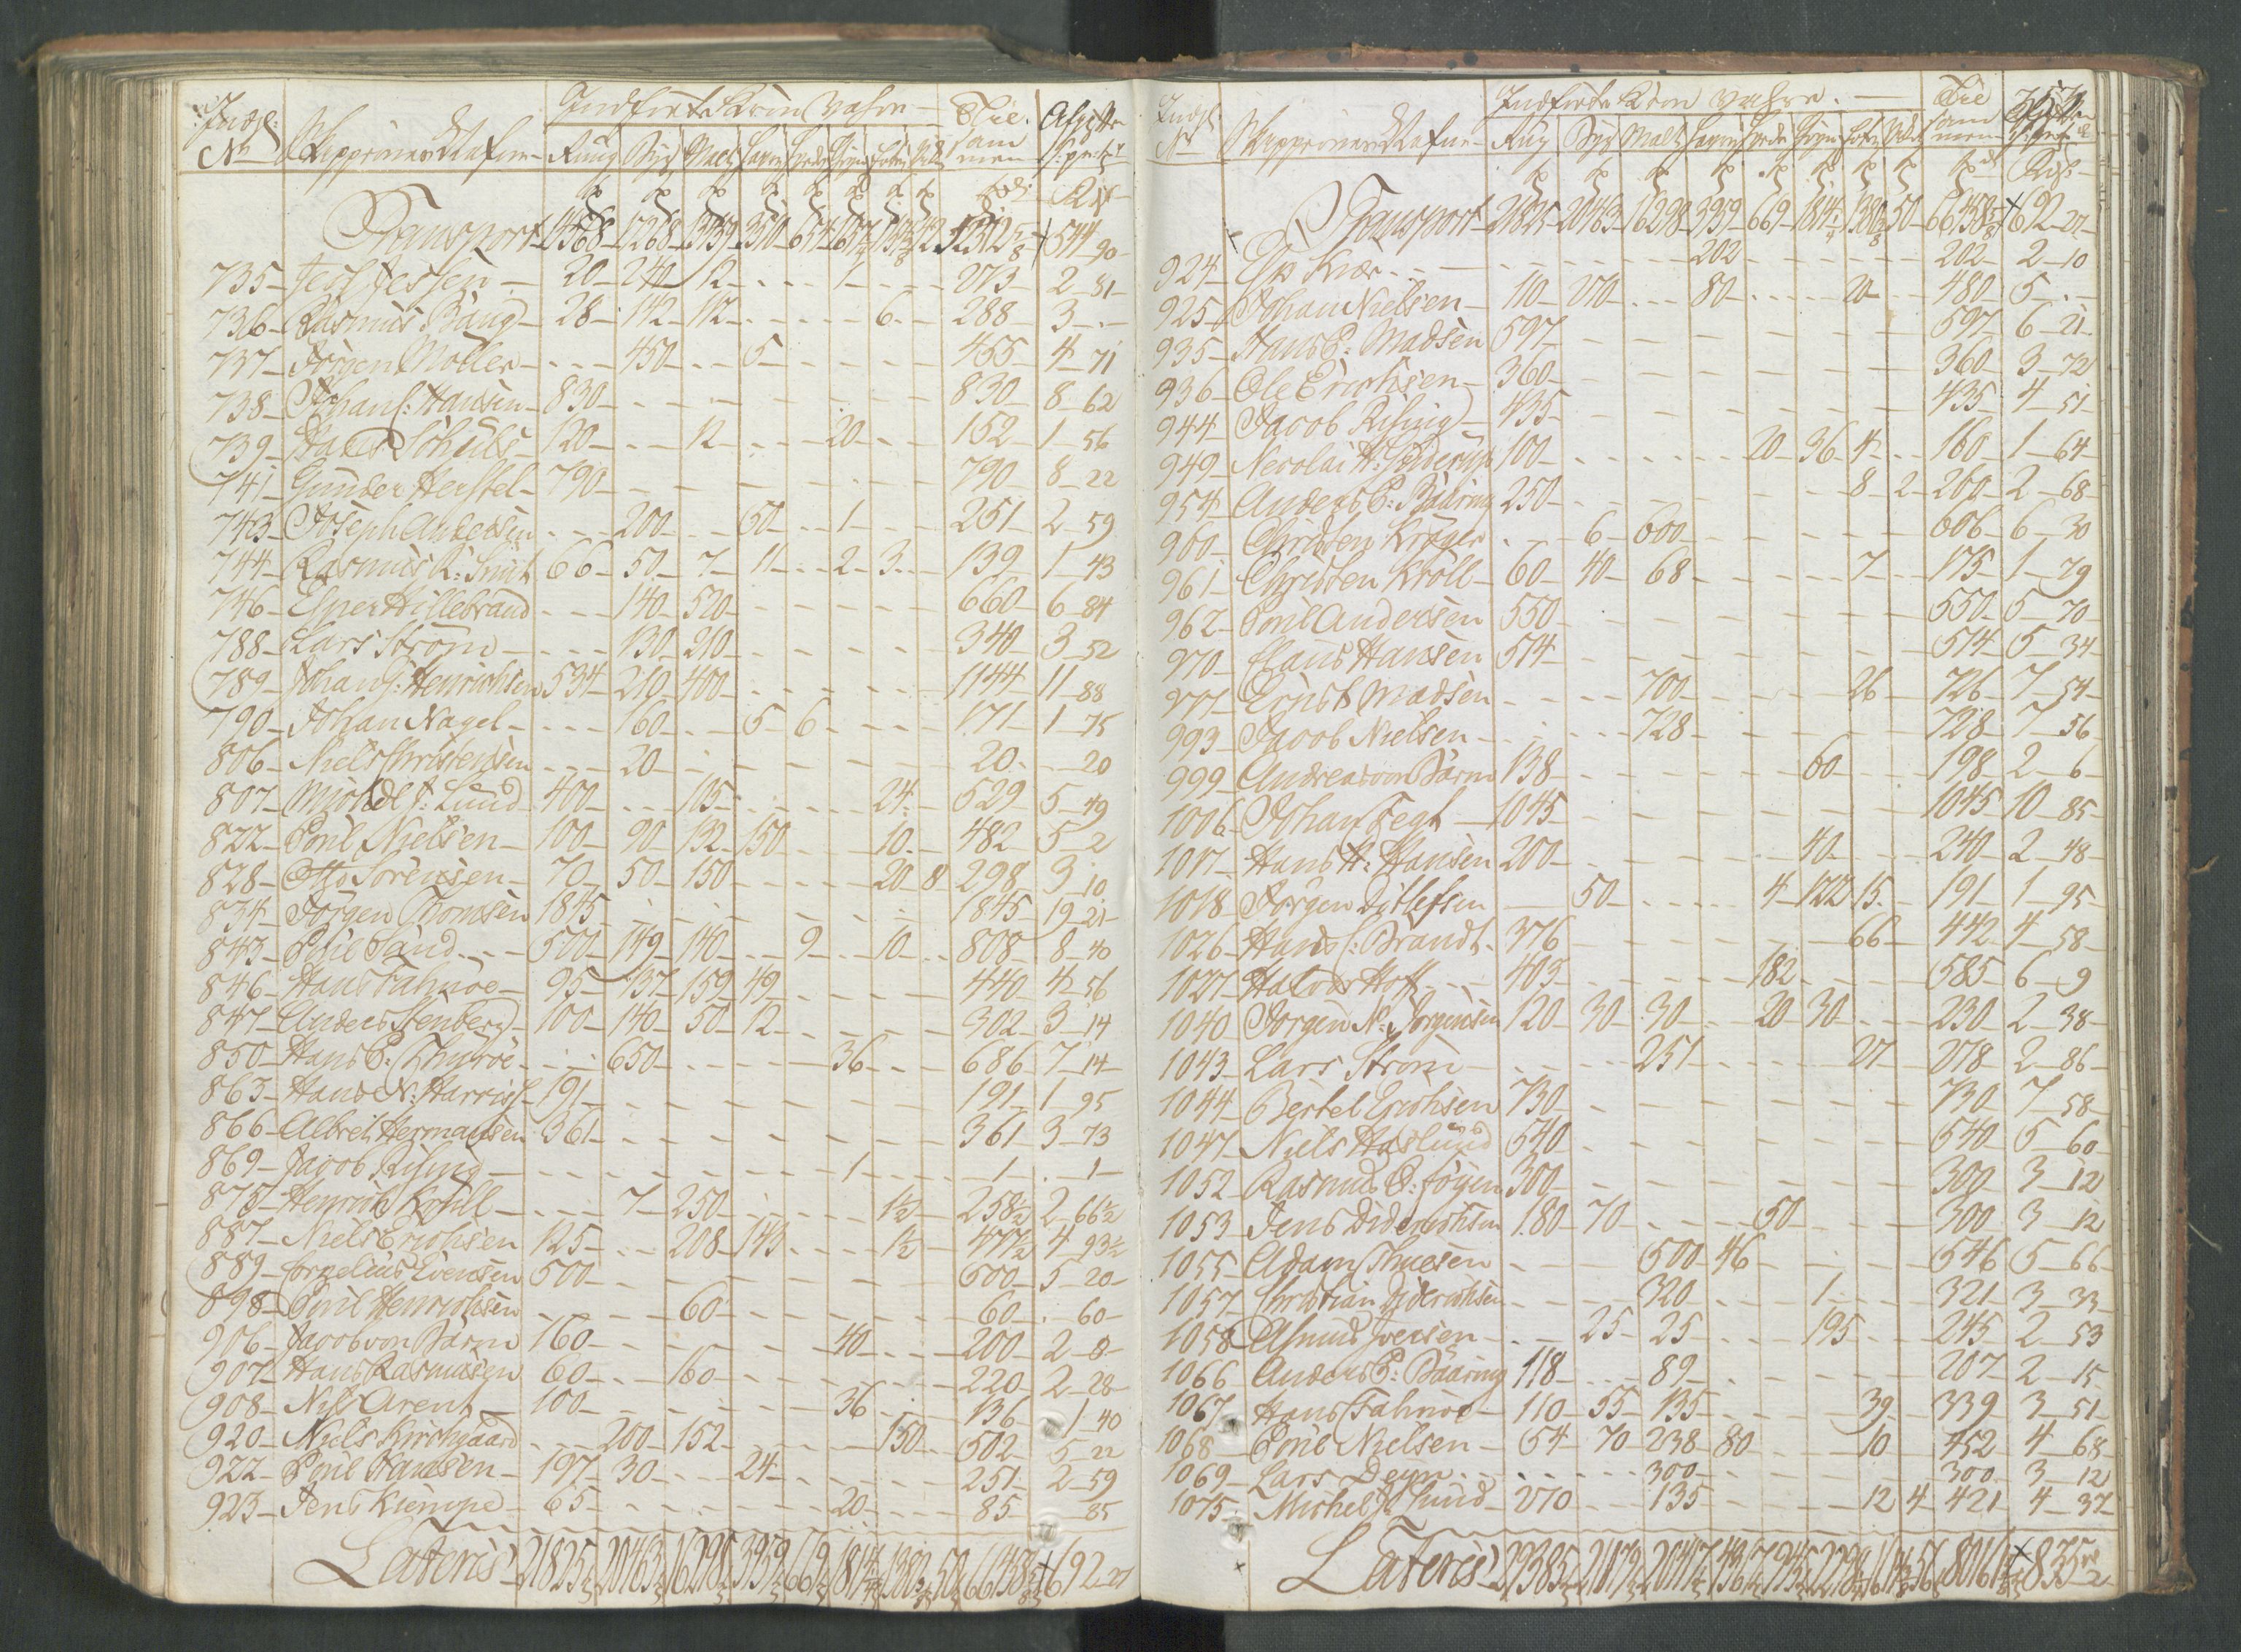 Indførte Korn Vahre
No Skippernes Nafne Rug Byg Malt Til sammen
Transport
735 Jess Jessen 20 240 12 1 273 2 81
736 Rasmus Bang 28 142 112 6 288 3
737 Jörgen Möller 450 5 455 4 71
738 Johan J: Hansen 830 830 8 62
739 120 12 20 152 1 56
741 Gunder Herstel 790 790 8 22
743 Joseph Andersen 200 50 1 251 2 59
744 Rasmus R: Smit 66 50 7 11 2 3 139 1 43
746 Esper Hillebrand 140 520 660 6 84
788 Lars Ström 130 210 340 3 52
789 Johan J: Henrichsen 534 210 400 1144 11 88
790 Johan Nagel 160 5 6 171 1 75
806 Niels Christensen 20 20 20
807 Michel J: Lund 400 105 24 529 5 49
822 Poul Nielsen 100 90 132 150 10 482 5 2
828 Otto Sörensen 70 50 150 20 8 298 3 10
834 Jörgen Thomsen 1845 1845 19 21
843 500 149 140 9 10 808 8 40
846 Hans Fahnöe 95 137 159 49 440 4 56
847 Anders Stenberg 100 140 50 12 302 3 14
850 Hans P: Thuröe 650 36 686 7 14
863 Hans N: 191 191 1 95
866 Albret Hermansen 361 361 3 73
869 Jacob Rising 1 1 1
875 Henrich Kröll 7 250 1½ 258½ 2 66½
887 Niels Erichsen 125 208 143 1½ 477½ 4 93½
889 Cornelius Evensen 500 500 5 20
898 Poul Henrichsen 60 60 60
906 Jacob von Barm 160 40 200 2 8
907 Hans Rasmusen 60 160 220 2 28
908 Nils Arent 100 36 136 1 40
920 Niels Kirchgaard 200 152 150 502 5 22
922 Poul Hansen 197 30 24 251 2 59
923 Jens Kiempe 65 20 85 85
Lateris 692 27
Indførte Korn Vahre
No Skippernes Nafne Rug Byg Malt Til sammen
Transport 692 27
924 202 202 2 10
925 Johan Nielsen 110 270 80 20 480 5
935 Hans P: Madsen 597 597 6 21
936 Ole Erichsen 360 360 3 72
944 Jacob Rising 435 435 4 51
949 Nicolai H: 100 20 36 4 160 1 64
954 Anders P: Baaring 250 8 2 260 2 68
960 Christen Kröyer 6 600 606 6 30
961 Christen Kröll 60 40 68 7 175 1 79
962 Poul Andersen 550 550 5 70
970 Claus Hansen 514 514 5 34
977 Ernst Madsen 700 26 726 7 54
993 Jacob Nielsen 728 728 7 56
999 Andreas von Barm 138 60 198 2 6
1006 Johan Fegt 1045 1045 10 85
1017 Hans H: Hansen 200 40 240 2 48
1018 Jörgen Ditlefsen 50 4 122 15 191 1 95
1026 Hans J: Brandt 376 66 442 4 58
1027 Halvor Hoff 403 182 585 6 9
1040 Jörgen N: Jörgensen 120 30 30 20 30 230 2 38
1043 Lars Ström 251 27 278 2 86
1044 Bertel Erichsen 730 730 7 58
1047 Niels Haslund 540 540 5 60
1052 Rasmus P: 300 300 3 12
1053 Jens Diderichsen 180 70 50 300 3 12
1055 Adam Thuesen 500 46 546 5 66
1057 Christian Diderichsen 320 1 321 3 33
1058 Asmus Iversen 25 25 195 245 2 53
1066 Anders P: Baaring 118 89 207 2 15
1067 Hans Fahnöe 110 55 135 39 339 3 51
1068 Poul Nielsen 54 70 238 80 10 452 4 68
1069 Lars 300 300 3 12
1075 Michel J: Lund 270 135 12 4 421 4 37
Lateris 835 2